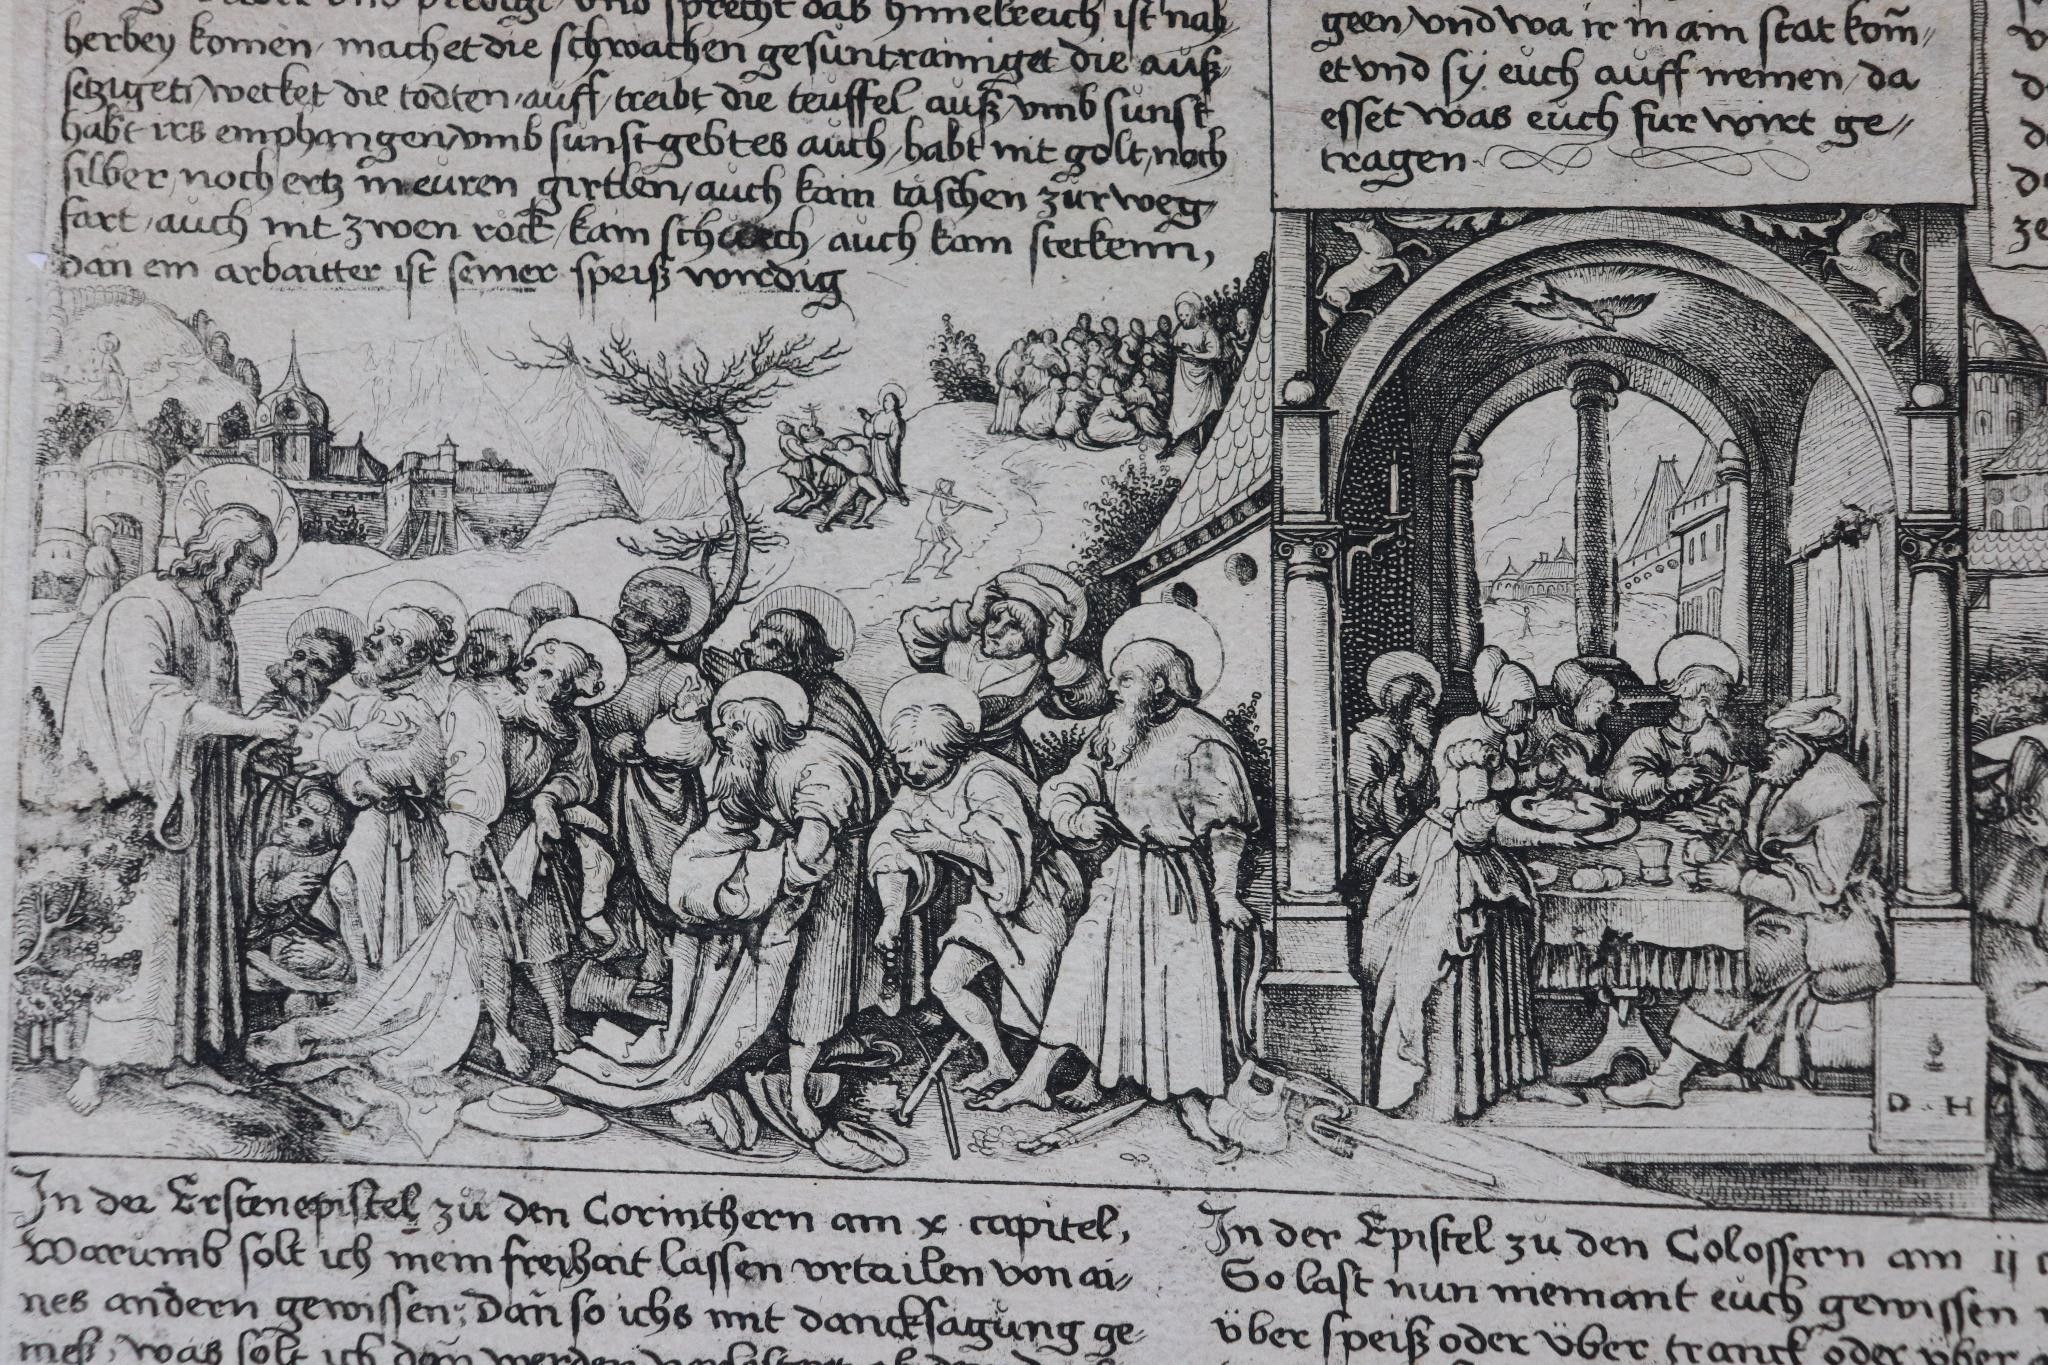 und predigt, und sprecht das himelreich ist nah
herbey komen, machet die schwachen gesunt, rainiget die auß/
setzigen, wecket die todten auff, treibt die teuffel auß, vmb sunst
habt irs emphangen, vmb sunst gebt es auch, habt nit golt, noch
silber, noch ertz in euren girtlen, auch kain täschen zür weg/
fart, auch nit zwen röck, kain schuech, auch kain steckenn,
dan ein arbaitter ist seiner speiß wirdig
geen, vnd wa ir in ain stat kom̃//
et vnd sÿ eüch auff nemen, da
esset was eüch für wirt ge//
tragen
D H
In der Ersten epistel zü den Corinthern am x capitel,
Warumb solt ich mein freihait lassen vrtailen von ai//
nes andern gewissen, Dañ so ichs mit dancksagüng ge//
neß, was solt ich dañ werden
In der Epistel zü den Colossern am ij
So last nun niemant eüch gewissen
über speiß oder über tranck oder über